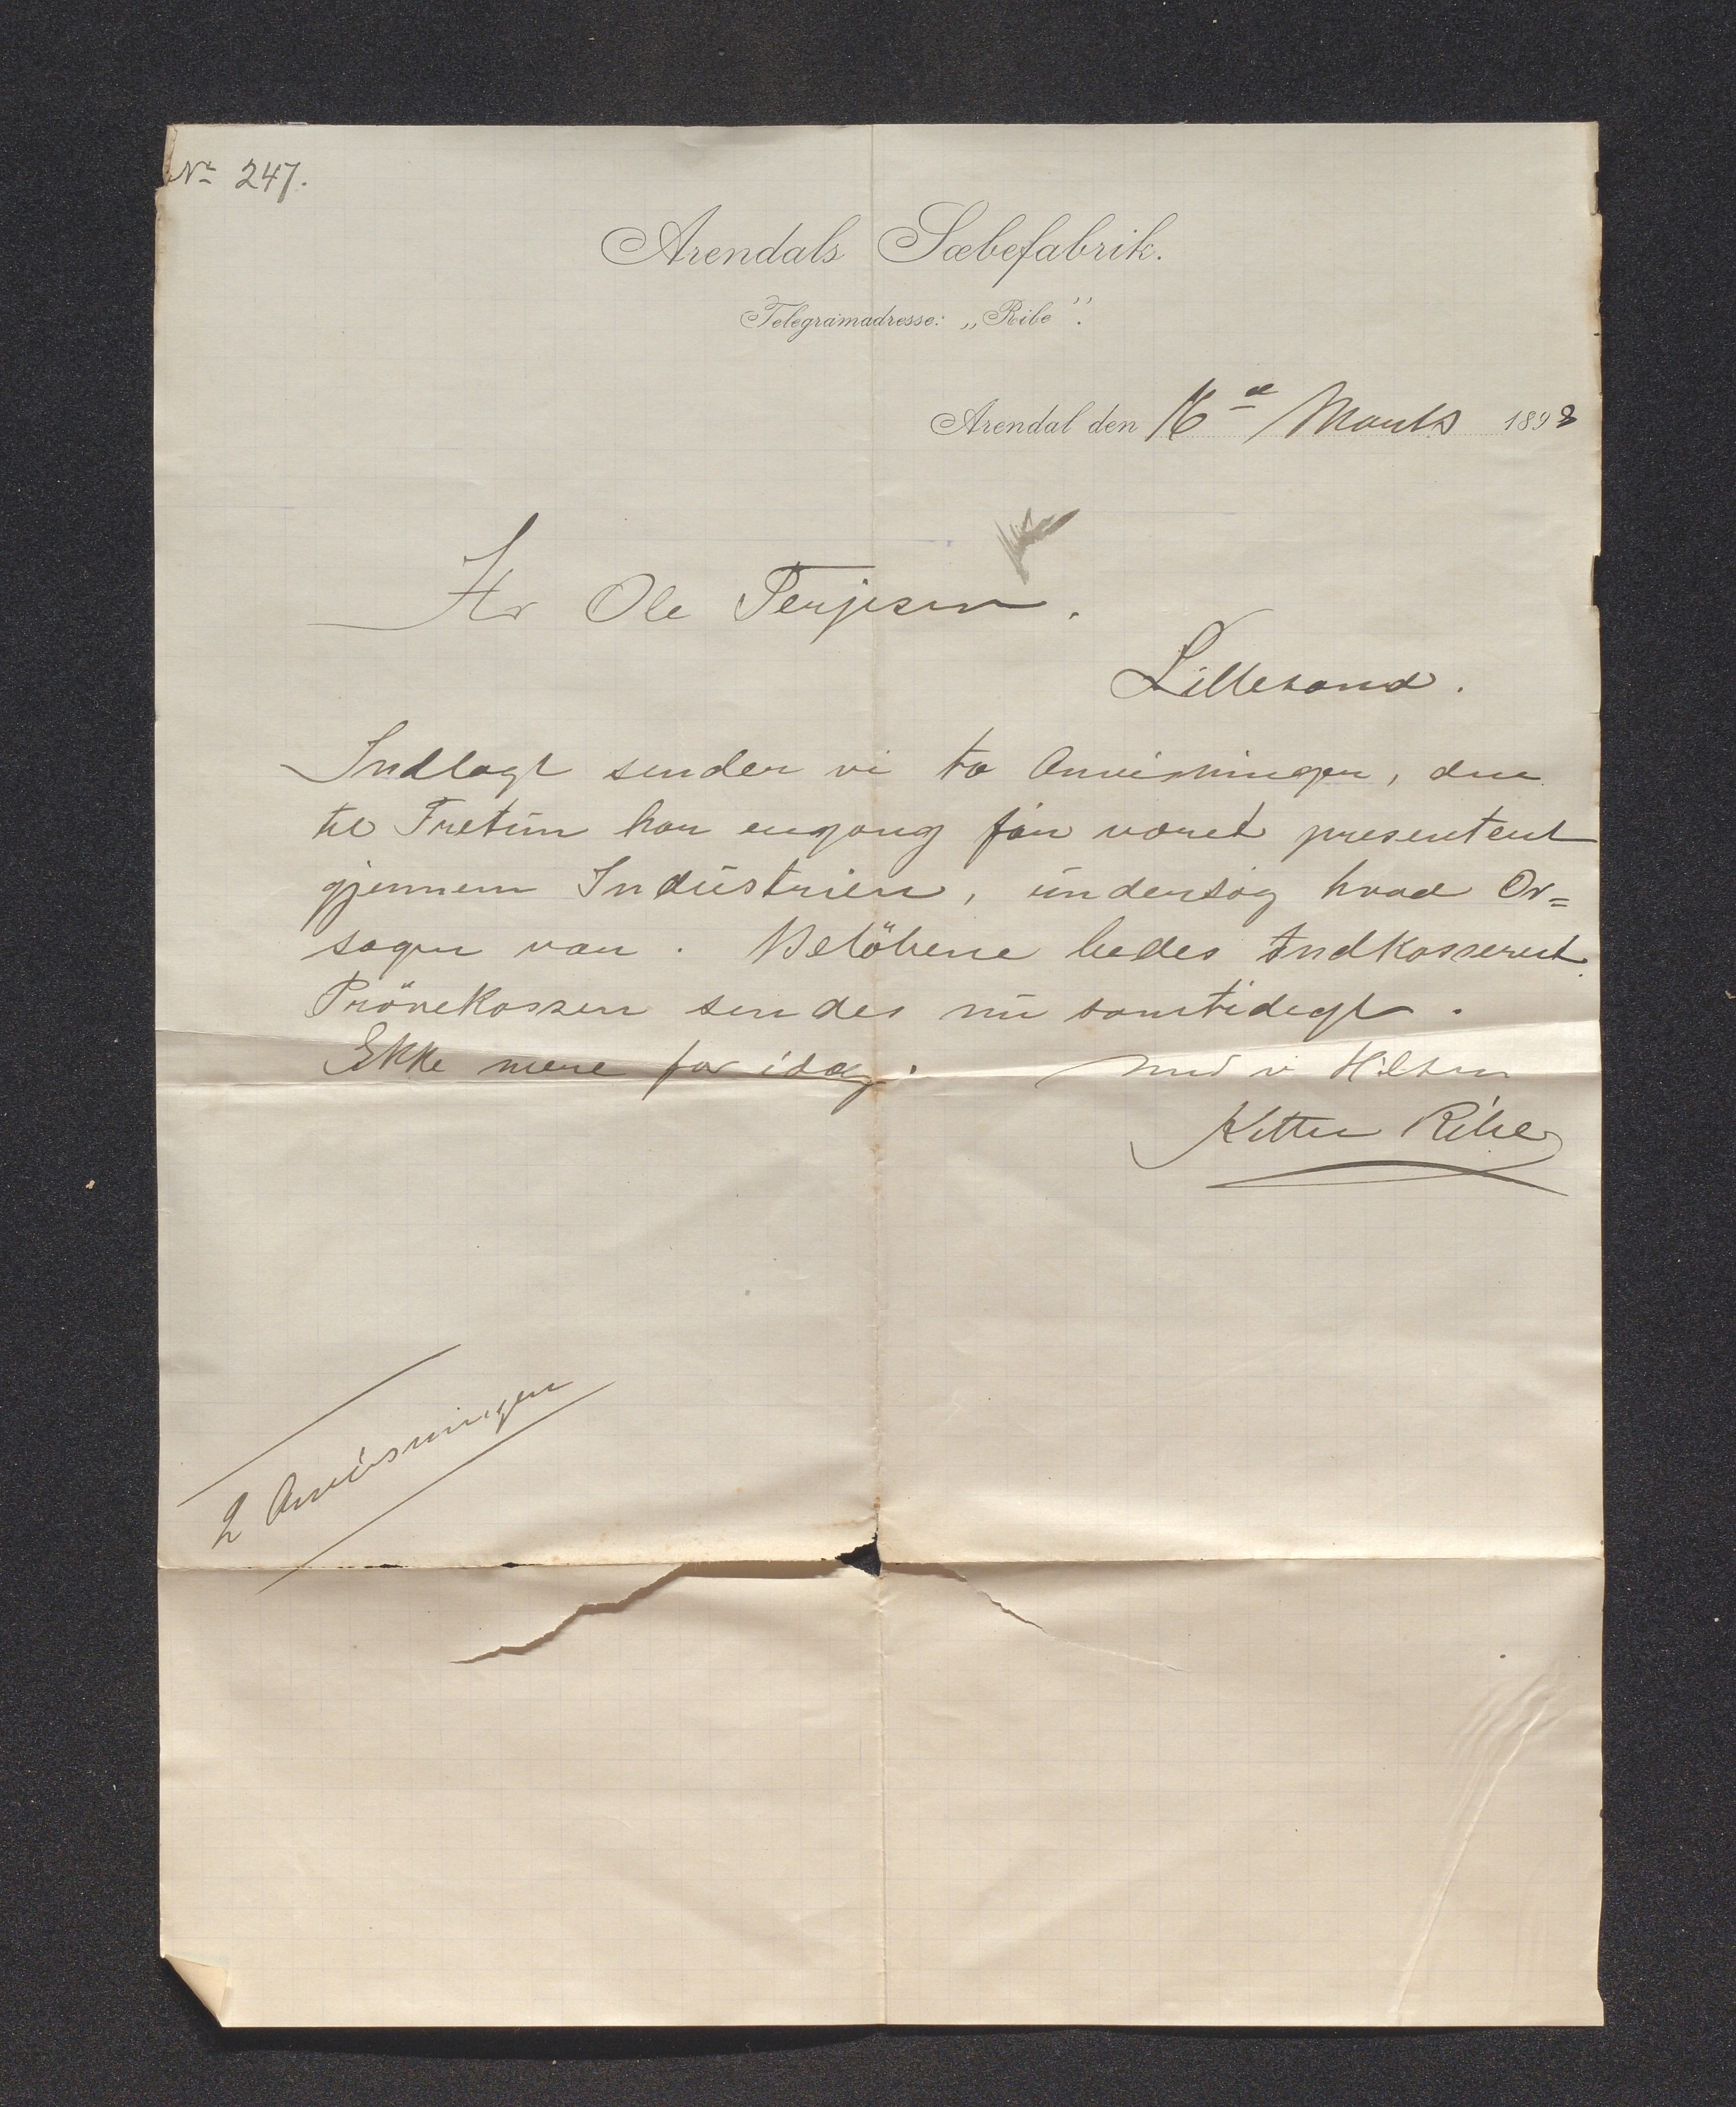 No 247.
Arendals Sæbefabrik.
Telegramadresse: „Ribe”.
Arendal den 16de Marts 1898
Hr Ole Terjesen.
Lillesand.
Indlagt sender vi to Anvisninger, den
til Tretun har engang før været presentert
gjennem Industrien, undersøg hvad Or=
sagen var. Belöbene bedes indkasseret.
Prövekassen sendes nu samtidigt.
Ikke mere for idag. Med v Hilsen
Kitten Ribe
2 Anvisninger